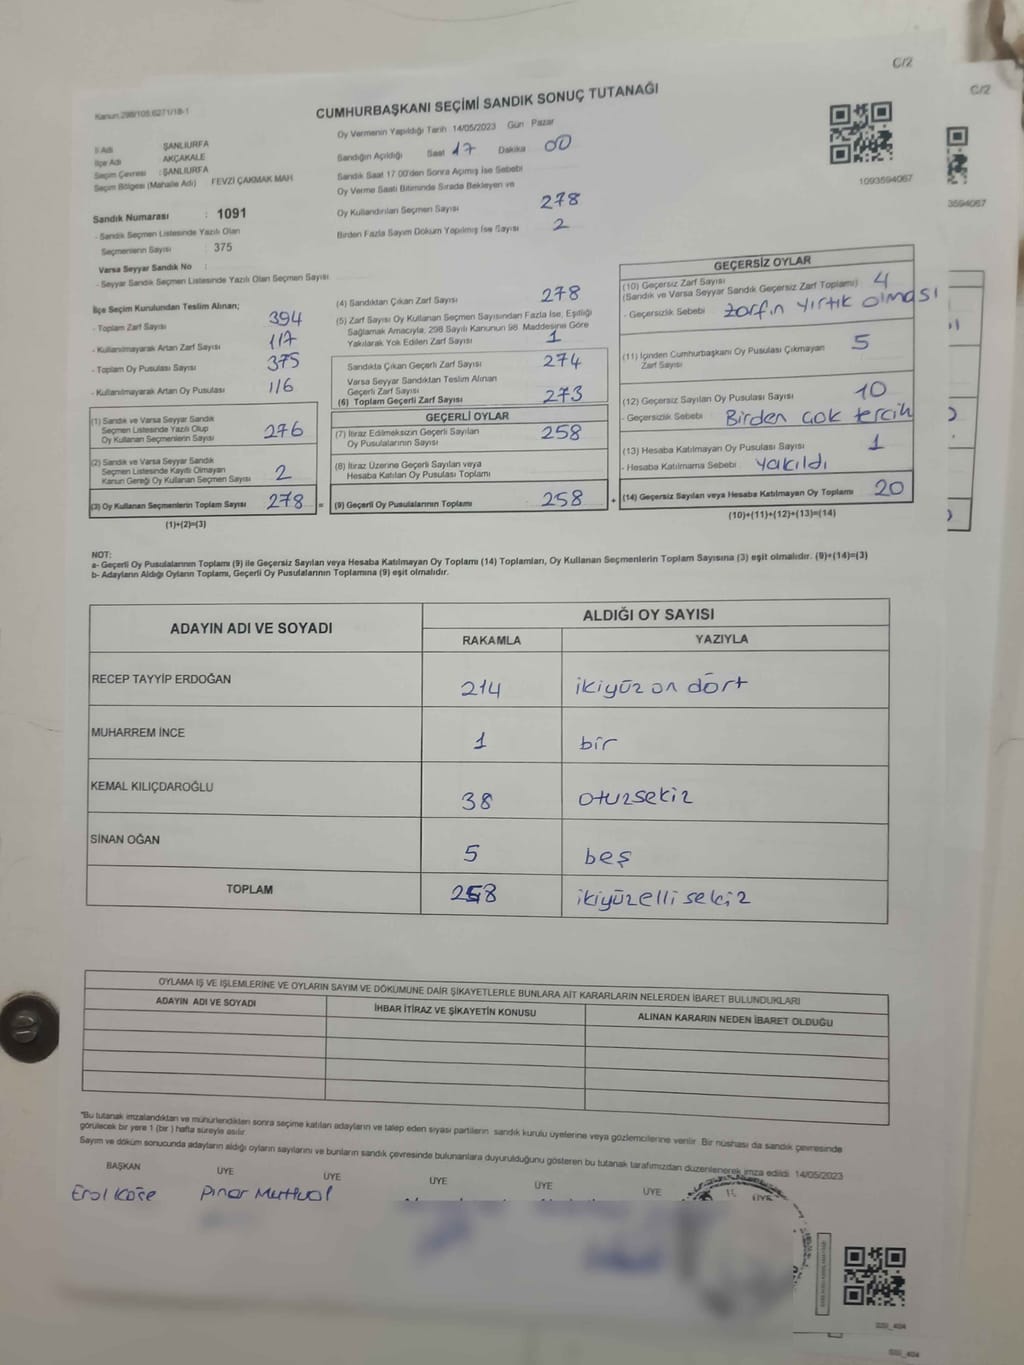 C/2
C/2
Kanun:298/105;6271/18-1
CUMHURBAŞKANI SEÇİMİ SANDIK SONUÇ TUTANAĞI
Oy Vermenin Yapıldığı Tarih 14/05/2023 Gün Pazar
İl Adı ŞANLIURFA
İlçe Adı AKÇAKALE
Seçim Çevresi : ŞANLIURFA
Seçim Bölgesi (Mahalle Adı) FEVZİ ÇAKMAK MAH
Sandığın Açıldığı Saat 17 Dakika 00
Sandık Saat 17.00'den Sonra Açımış İse Sebebi
Oy Verme Saati Bitiminde Sırada Bekleyen ve
Oy Kullandırılan Seçmen Sayısı 278
Birden Fazla Sayım Döküm Yapılmış İse Sayısı 2
1093594067
3594067
Sandık Numarası : 1091
- Sandık Seçmen Listesinde Yazılı Olan
Seçmenlerin Sayısı : 375
Varsa Seyyar Sandık No :
- Seyyar Sandık Seçmen Listesinde Yazılı Olan Seçmen Sayısı
İlçe Seçim Kurulundan Teslim Alınan;
- Toplam Zarf Sayısı 394
- Kullanılmayarak Artan Zarf Sayısı 117
- Toplam Oy Pusulası Sayısı 375
- Kullanılmayarak Artan Oy Pusulası 116
(1) Sandık ve Varsa Seyyar Sandık
Seçmen Listesinde Yazılı Olup
Oy Kullanan Seçmenlerin Sayısı 276
(2) Sandık ve Varsa Seyyar Sandık
Seçmen Listesinde Kayıtlı Olmayan
Kanun Gereği Oy Kullanan Seçmen Sayısı 2
(3) Oy Kullanan Seçmenlerin Toplam Sayısı 278 =
(1)+(2)=(3)
(4) Sandıktan Çıkan Zarf Sayısı 278
(5) Zarf Sayısı Oy Kullanan Seçmen Sayısından Fazla İse, Eşitliği
Sağlamak Amacıyla, 298 Sayılı Kanunun 98. Maddesine Göre
Yakılarak Yok Edilen Zarf Sayısı 1
Sandıkta Çıkan Geçerli Zarf Sayısı 274
Varsa Seyyar Sandıktan Teslim Alınan
Geçerli Zarf Sayısı
(6) Toplam Geçerli Zarf Sayısı 273
GEÇERLİ OYLAR
(7) İtiraz Edilmeksizin Geçerli Sayılan
Oy Pusulalarının Sayısı 258
(8) İtiraz Üzerine Geçerli Sayılan veya
Hesaba Katılan Oy Pusulası Toplamı
(9) Geçerli Oy Pusulalarının Toplamı 258 +
GEÇERSİZ OYLAR
(10) Geçersiz Zarf Sayısı
(Sandık ve Varsa Seyyar Sandık Geçersiz Zarf Toplamı) 4
- Geçersizlik Sebebi zarfın yırtık olması
(11) İçinden Cumhurbaşkanı Oy Pusulası Çıkmayan
Zarf Sayısı 5
(12) Geçersiz Sayılan Oy Pusulası Sayısı 10
- Geçersizlik Sebebi Birden çok tercih
(13) Hesaba Katılmayan Oy Pusulası Sayısı 1
- Hesaba Katılmama Sebebi yakıldı
(14) Geçersiz Sayılan veya Hesaba Katılmayan Oy Toplamı 20
(10)+(11)+(12)+(13)=(14)
NOT:
a- Geçerli Oy Pusulalarının Toplamı (9) ile Geçersiz Sayılan veya Hesaba Katılmayan Oy Toplamı (14) Toplamları, Oy Kullanan Seçmenlerin Toplam Sayısına (3) eşit olmalıdır. (9)+(14)=(3)
b- Adayların Aldığı Oyların Toplamı, Geçerli Oy Pusulalarının Toplamına (9) eşit olmalıdır.
ADAYIN ADI VE SOYADI ALDIĞI OY SAYISI
RAKAMLA YAZIYLA
RECEP TAYYİP ERDOĞAN 214 ikiyüz on dört
MUHARREM İNCE 1 bir
KEMAL KILIÇDAROĞLU 38 otuzsekiz
SİNAN OĞAN 5 beş
TOPLAM 258 ikiyüzelli sekiz
OYLAMA İŞ VE İŞLEMLERİNE VE OYLARIN SAYIM VE DÖKÜMÜNE DAİR ŞİKAYETLERLE BUNLARA AİT KARARLARIN NELERDEN İBARET BULUNDUKLARI
ADAYIN ADI VE SOYADI İHBAR İTİRAZ VE ŞİKAYETİN KONUSU ALINAN KARARIN NEDEN İBARET OLDUĞU
"Bu tutanak imzalandıktan ve mühürlendikten sonra seçime katılan adayların ve talep eden siyasi partilerin sandık kurulu üyelerine veya gözlemcilerine verilir. Bir nüshası da sandık çevresinde
görülecek bir yere 1 (bir) hafta süreyle asılır.
Sayım ve döküm sonucunda adayların aldığı oyların sayılarını ve bunların sandık çevresinde bulunanlara duyurulduğunu gösteren bu tutanak tarafımızdan düzenlenerek imza edildi. 14/05/2023
BAŞKAN ÜYE ÜYE ÜYE ÜYE ÜYE ÜYE
Erol Köse Pınar
SSI_404
SSI_404